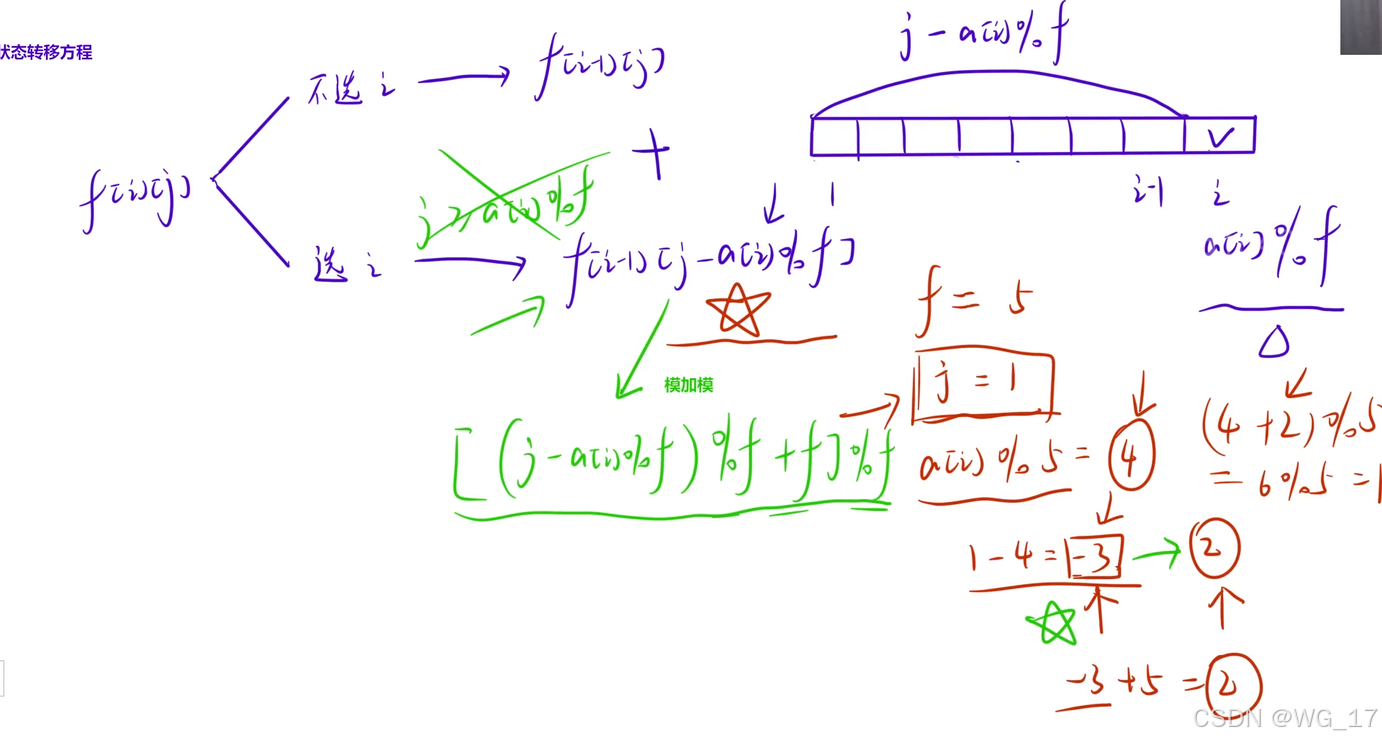 状态转移方程
不选 i → f[i-1][j]
j - a[i]%f
f[i][j]
+
j ≥ a[i]%f
1
i-1
i
选 i → f[i-1][j-a[i]%f]
a[i]%f
f = 5
△
模加模
j = 1
[(j-a[i]%f)%f+f]%f
a[i]%5 = 4
(4+2)%5
= 6%5 = 1
1-4 = -3 → 2
-3+5 = 2
CSDN @WG_17